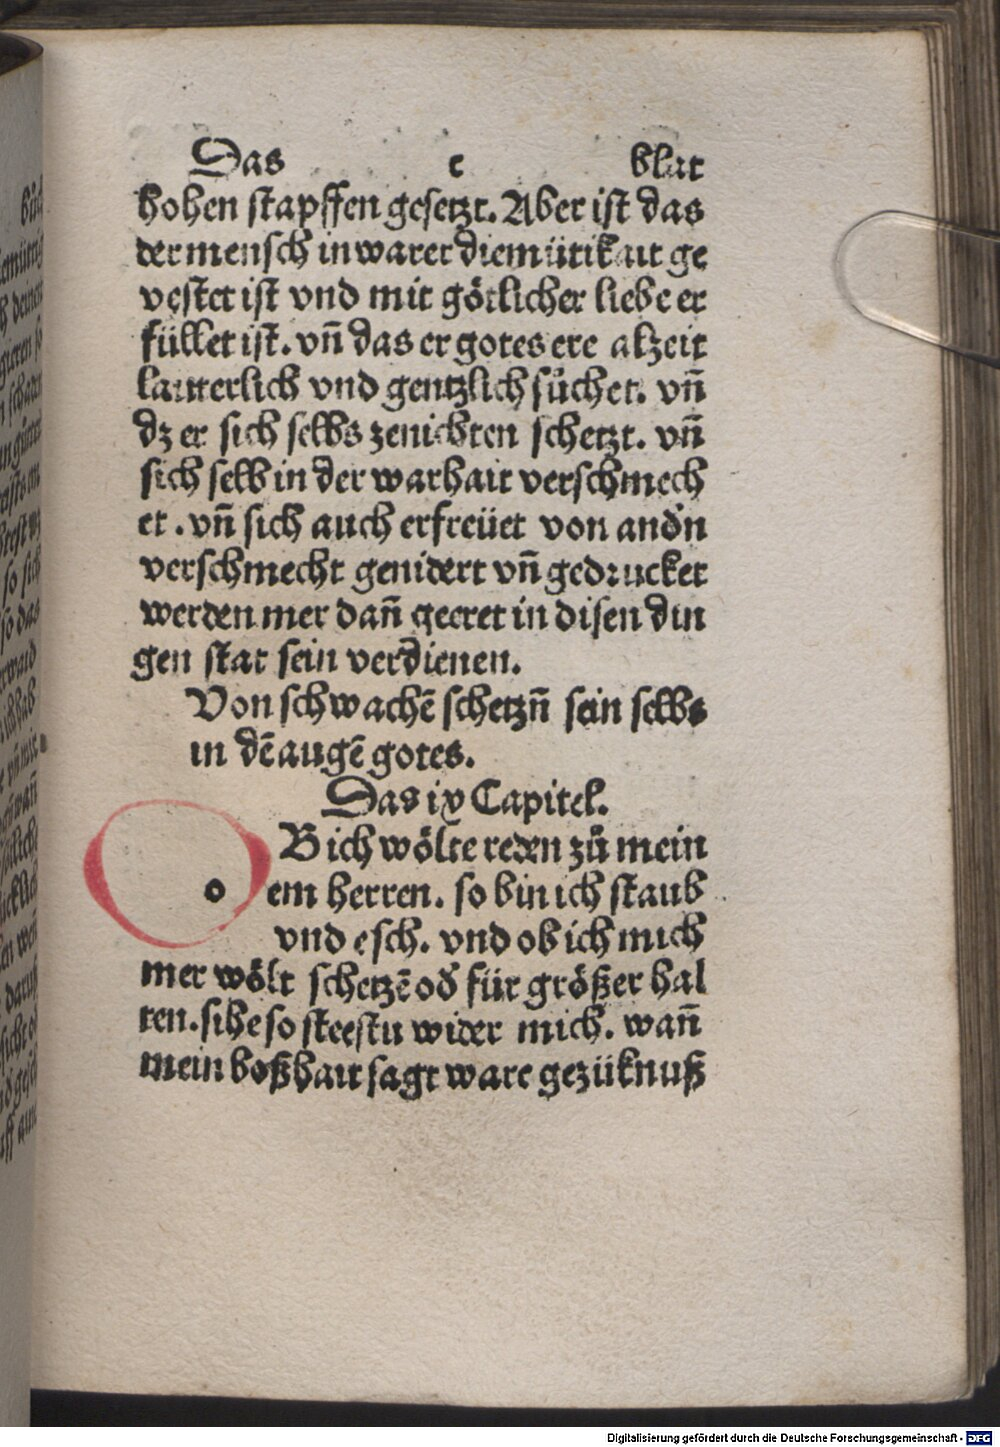 Das c blat
hohen stapffen gesetzt. Aber ist das
der mensch in warer diemütikait ge
vestet ist vnd mit götlicher liebe er
füllet ist. vn̄ das er gotes ere alzeit
lauterlich vnd gentzlich sůchet. vn̄
dz er sich selbs zenichten schetzt. vn̄
sich selb in der warhait verschmech
et. vn̄ sich auch erfreüet von andn̄
verschmecht genidert vn̄ gedrucket
werden mer dan̄ geeret in disen din
gen stat sein verdienen.
Von schwachē schetzn̄ sein selbs
in dē augē gotes.
Das ix Capitel.
o B ich wölte reden zů mein
em herren. so bin ich staub
vnd esch. vnd ob ich mich
mer wölt schetzē od̄ für größer hal
ten. sihe so steestu wider mich. wan̄
mein boßhait sagt ware gezüknuß
Digitalisierung gefördert durch die Deutsche Forschungsgemeinschaft - DFG